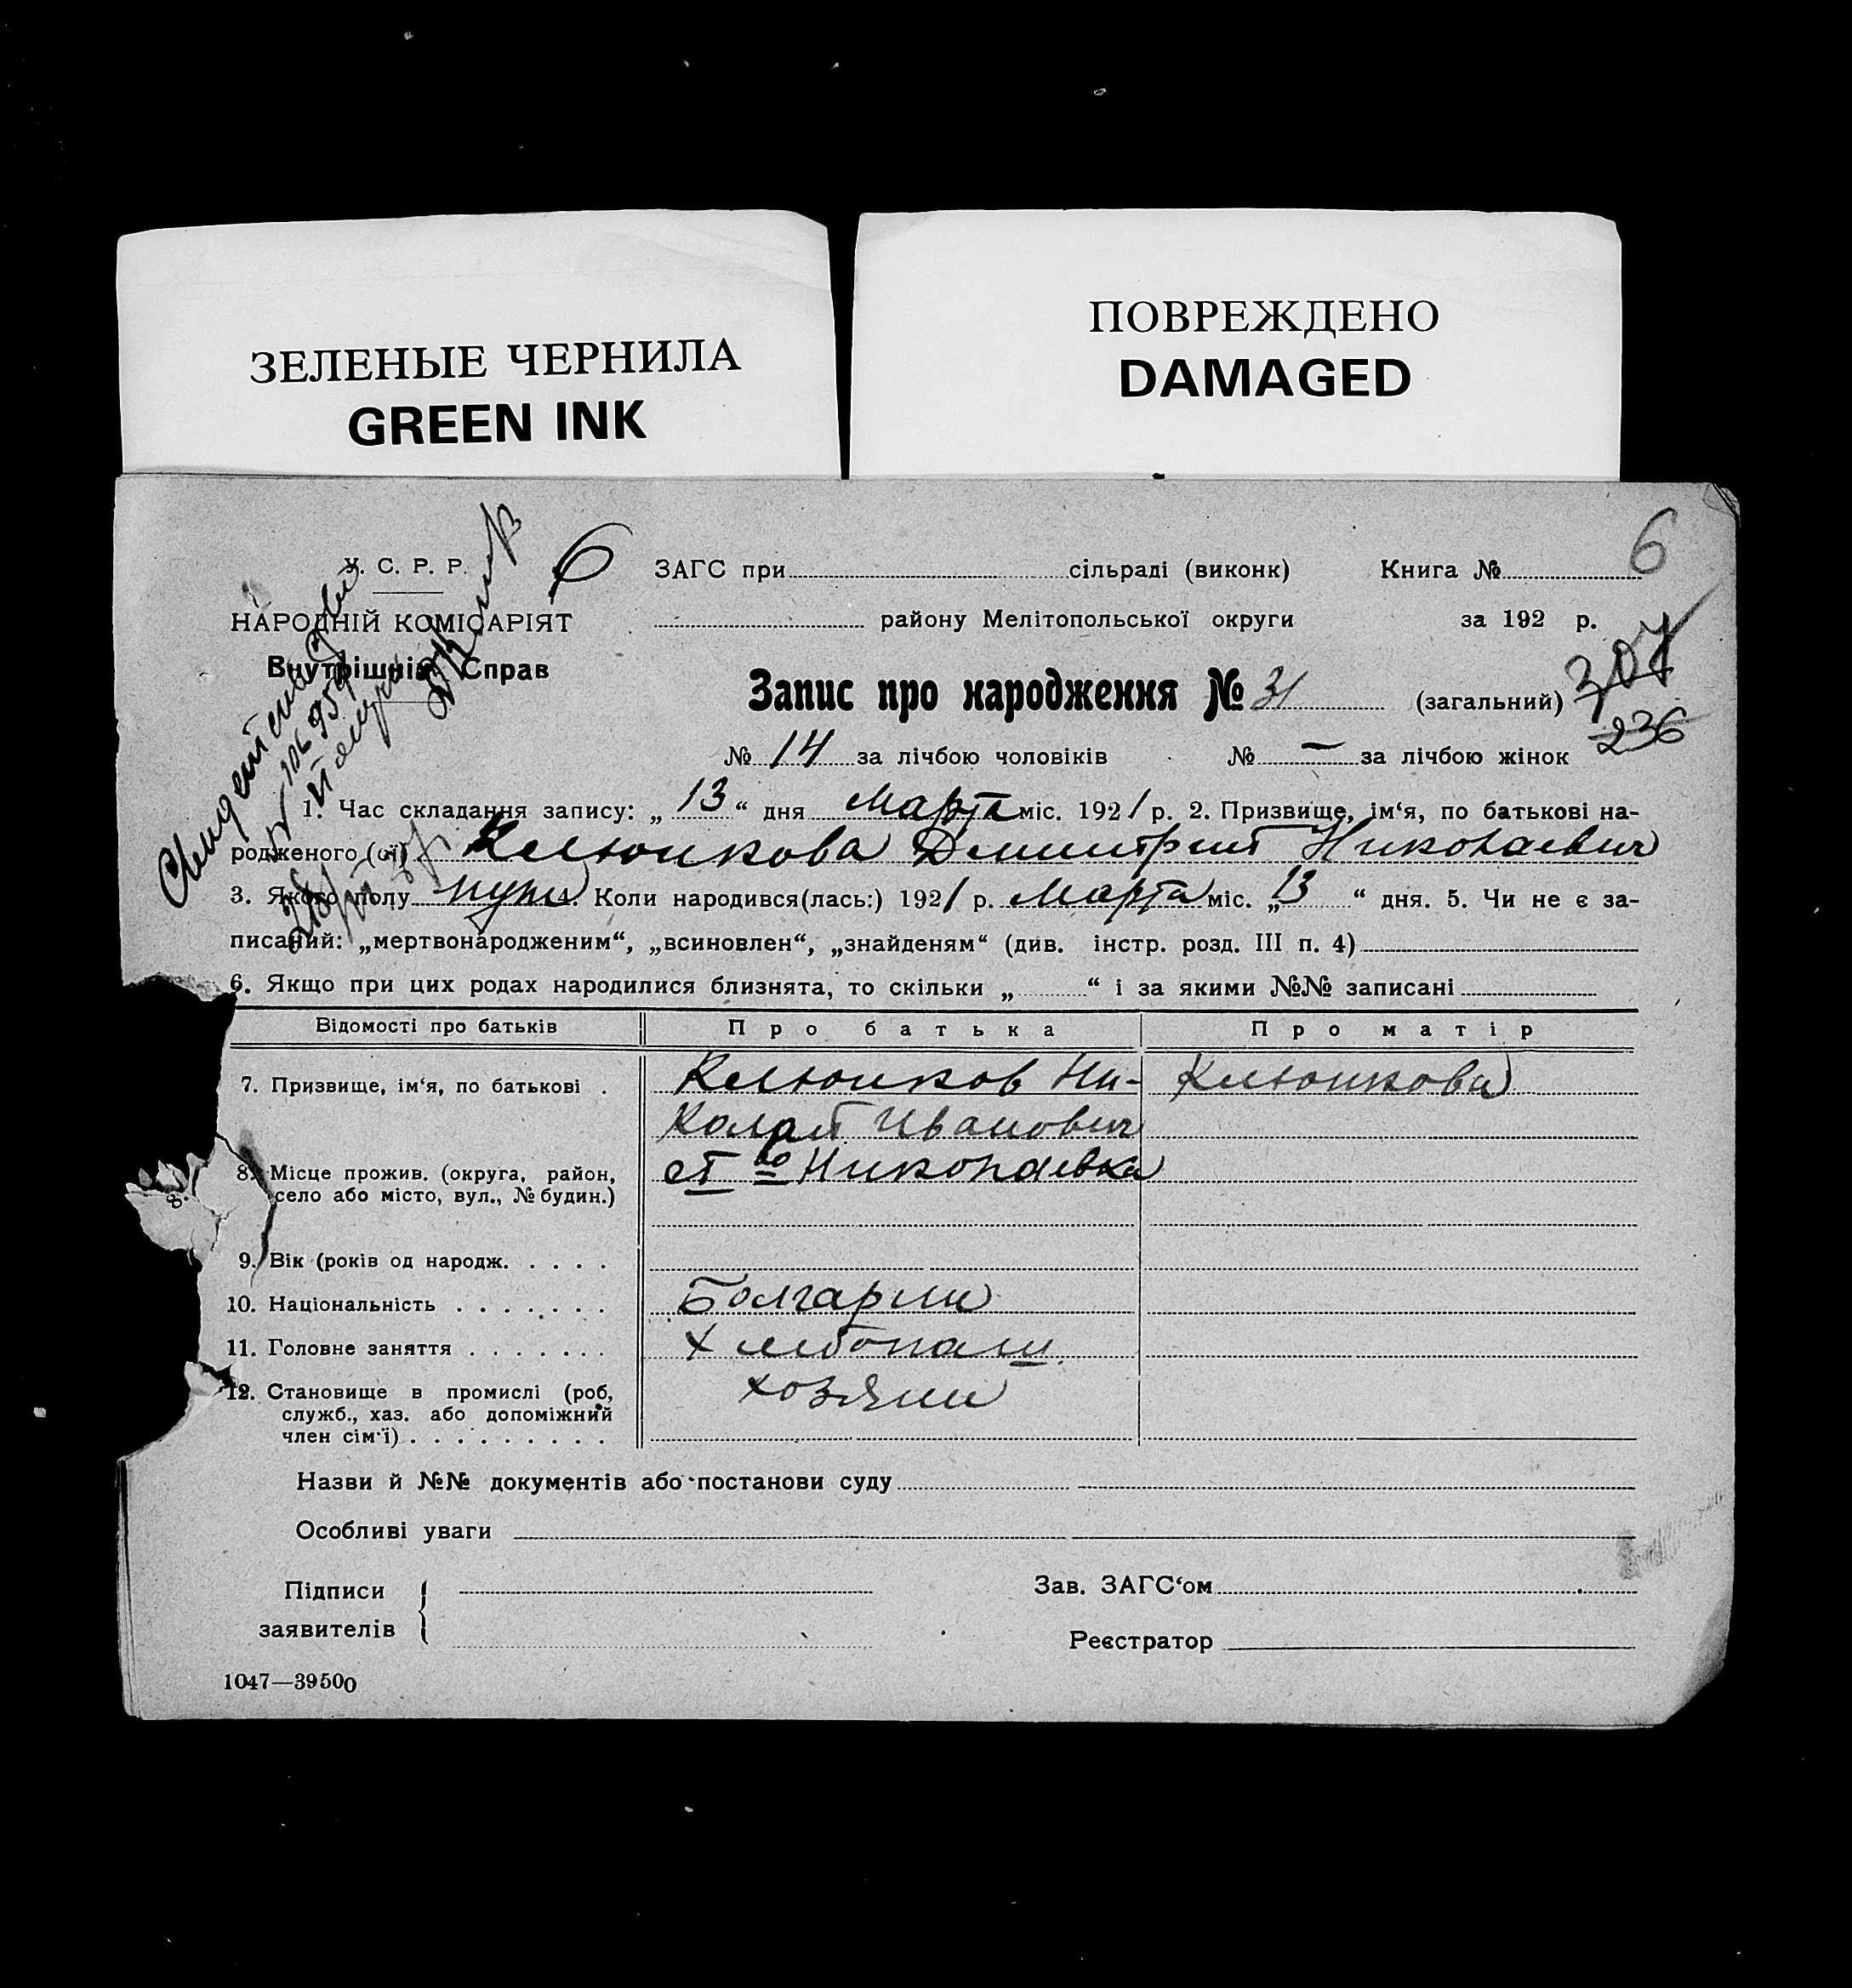 ЗЕЛЕНЫЕ ЧЕРНИЛА
GREEN INK
ПОВРЕЖДЕНО
DAMAGED
У. С. Р. Р.
НАРОДНІЙ КОМІСАРІЯТ
Внутрішніх Справ
6
ЗАГС при сільраді (виконк) Книга № 6
району Мелітопольської округи за 192 р.
307
Запис про народження № 31 (загальний)
236
№ 14 за лічбою чоловіків № — за лічбою жінок
1. Час складання запису: „ 13 “ дня Марта міс. 1921 р. 2. Призвище, ім‘я, по батькові на-
родженого (ої) Клюнкова Дмитрий Николаевич
3. Якого полу муж. Коли народився(лась:) 1921 р. Марта міс. „ 13 “ дня. 5. Чи не є за-
писаний: „мертвонародженим“, „всиновлен“, „знайденям“ (див. інстр. розд. III п. 4)
6. Якщо при цих родах народилися близнята, то скільки „ “ і за якими №№ записані
Відомості про батьків Про батька Про матір
7. Призвище, ім‘я, по батькові . Клюнков Ни- Клюнкова
колай Иванович
8. Місце прожив. (округа, район,
село або місто, вул., № будин.)
Николаевка
8.
9. Вік (років од народж. . . . .
10. Національність . . . . . . . Болгарин
11. Головне заняття . . . . . . . Хлебопаш.
12. Становище в промислі (роб,
служб., хаз. або допоміжний
член сім‘ї) . . . . . . . . .
хозяин
Назви й №№ документів або постанови суду
Особливі уваги
Підписи
заявителів
Зав. ЗАГС‘ом
Реєстратор
1047—39500